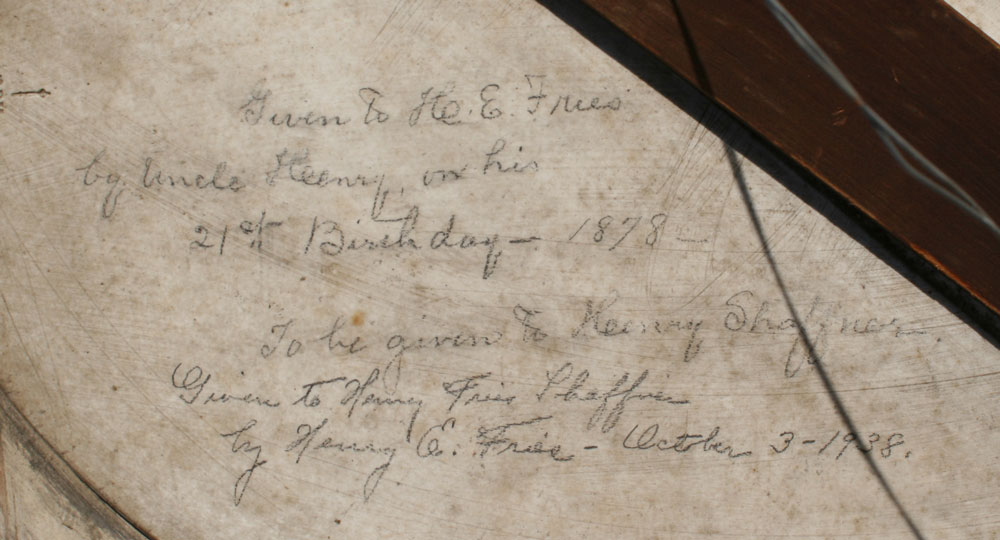 Given to H. E. Fries
by Uncle Henry, on his
21st Birthday — 1878 —
To be given to Henry Shaffner.
Given to Henry Fries Shaffner
by Henry E. Fries - October 3 - 1938.